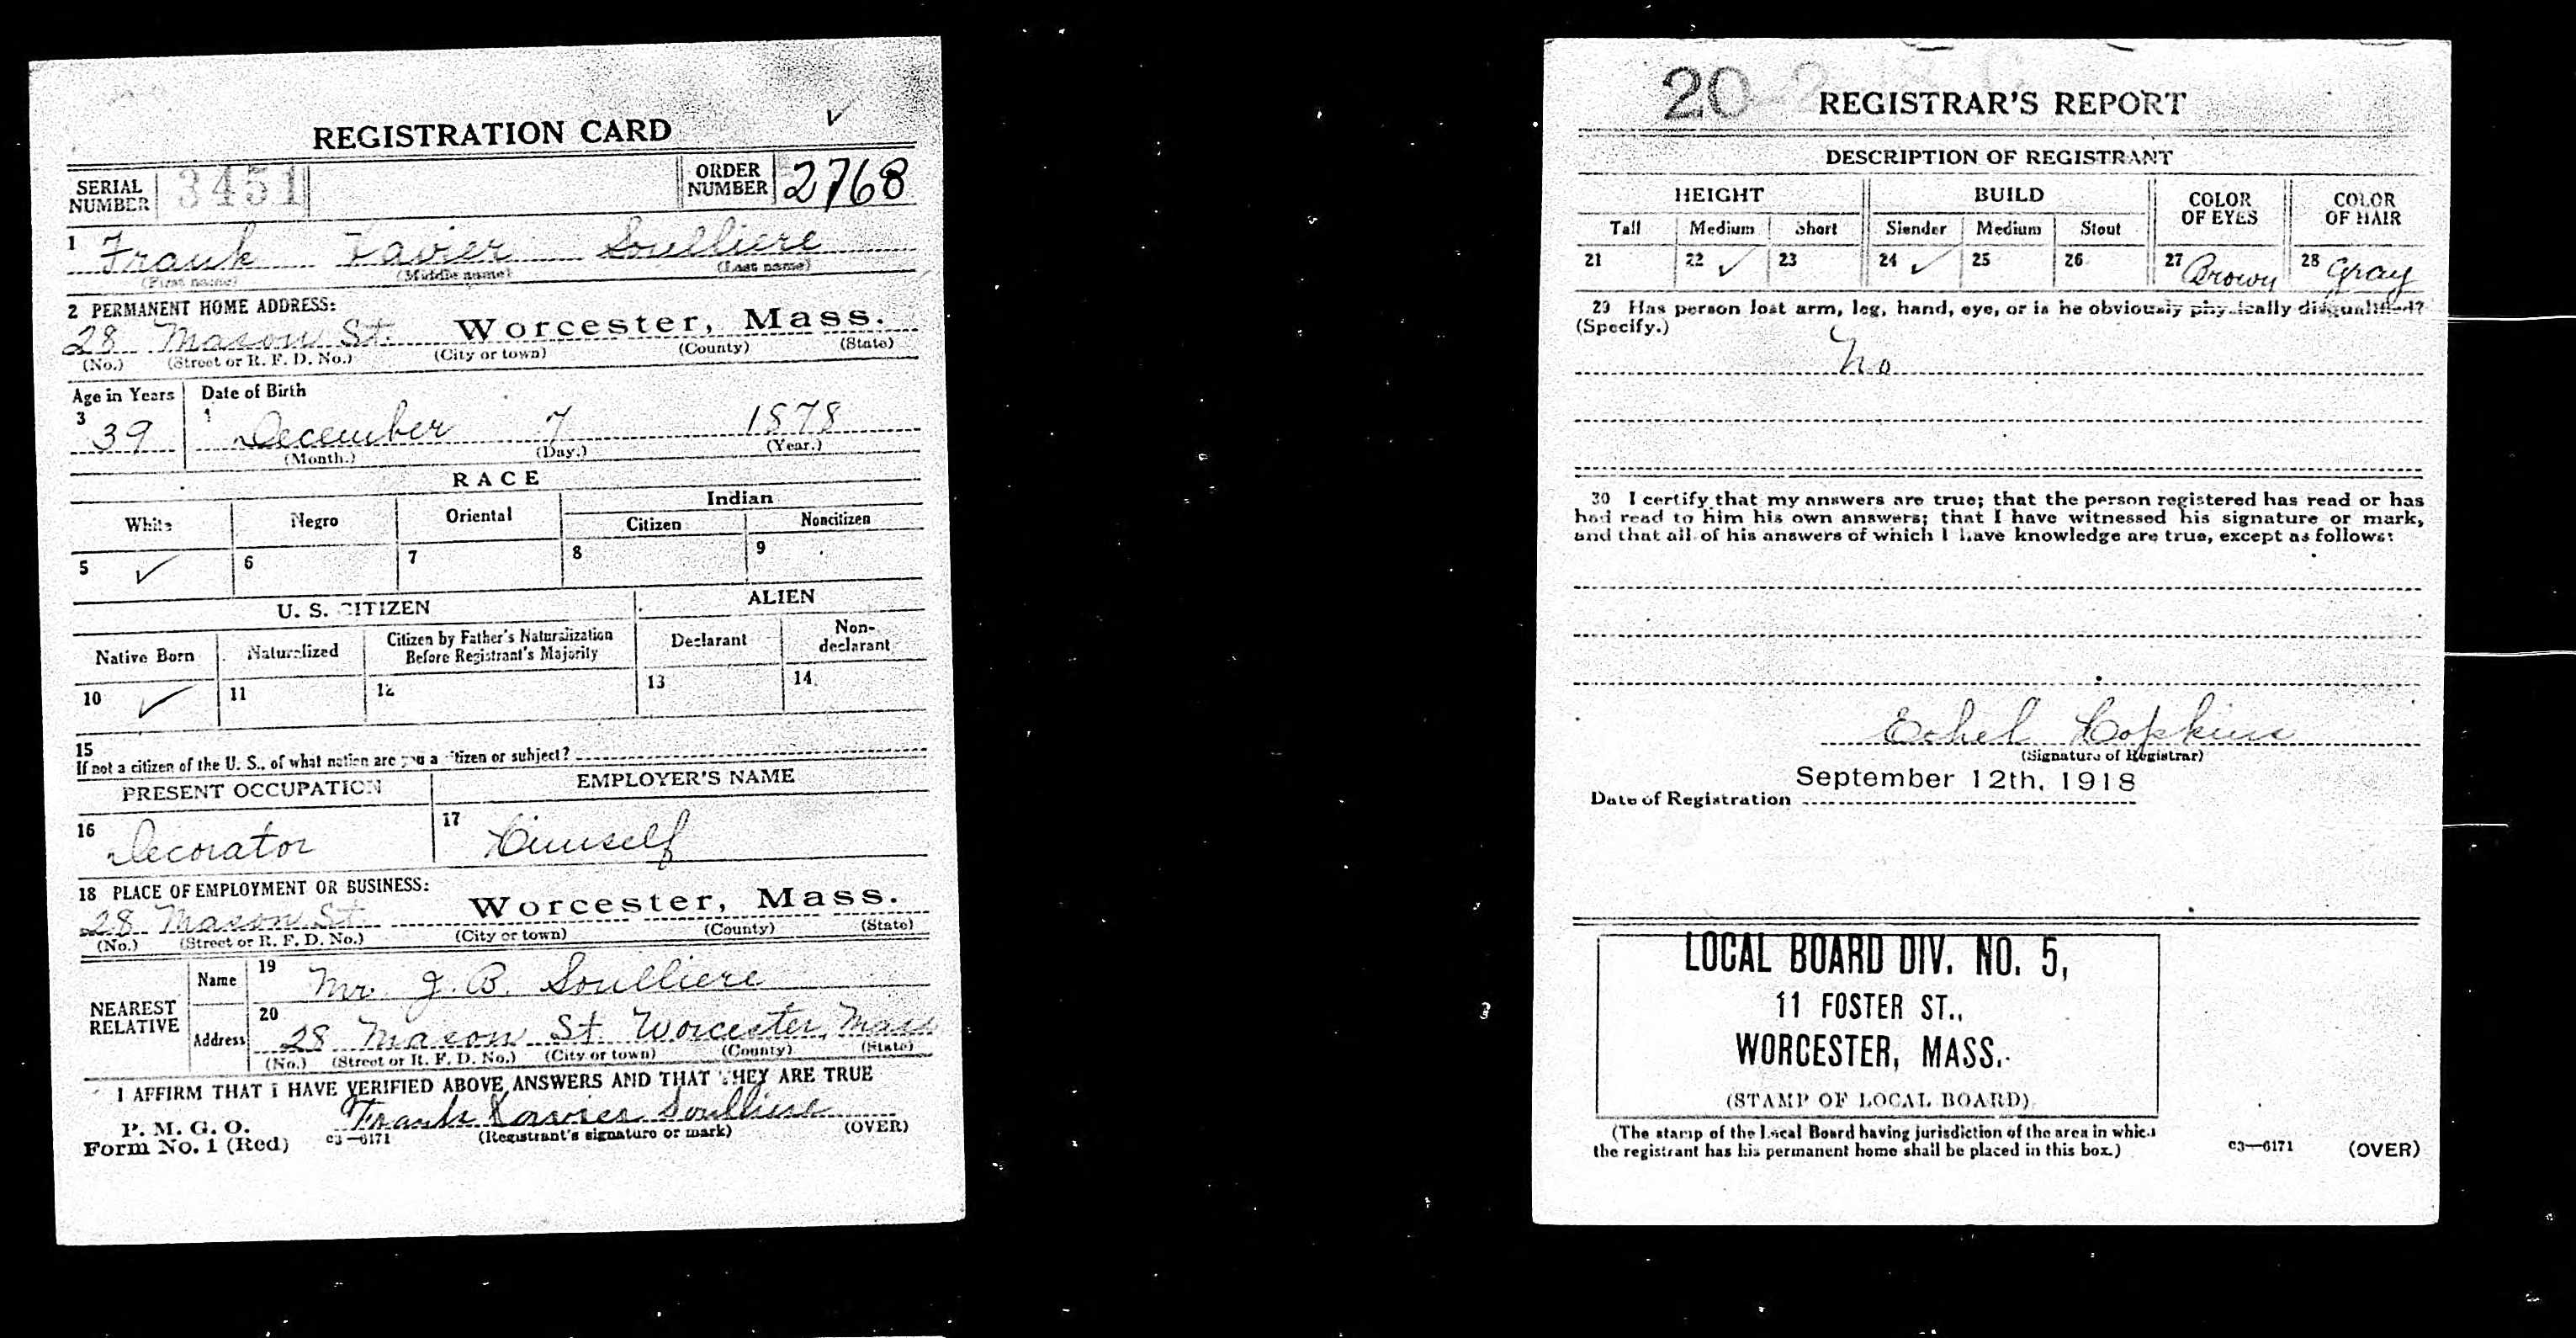 REGISTRATION CARD
SERIAL NUMBER 3451 ORDER NUMBER 2768
1 Frank Xavier Soulliere
(First name) (Middle name) (Last name)
2 PERMANENT HOME ADDRESS:
28 Mason St. Worcester, Mass.
(No.) (Street or R. F. D. No.) (City or town) (County) (State)
Age in Years Date of Birth
3 39 December 7 1878
(Month.) (Day.) (Year.)
RACE
White Negro Oriental Indian
Citizen Noncitizen
5 ✓ 6 7 8 9
U. S. CITIZEN ALIEN
Native Born Naturalized Citizen by Father's Naturalization Before Registrant's Majority Declarant Non-declarant
10 ✓ 11 12 13 14
15
If not a citizen of the U. S., of what nation are you a citizen or subject?
PRESENT OCCUPATION EMPLOYER'S NAME
16 Decorator 17 Himself
18 PLACE OF EMPLOYMENT OR BUSINESS:
28 Mason St. Worcester, Mass.
(No.) (Street or R. F. D. No.) (City or town) (County) (State)
NEAREST RELATIVE
Name 19 Mr. J. B. Soulliere
Address 20 28 Mason St Worcester, Mass
(No.) (Street or R. F. D. No.) (City or town) (County) (State)
I AFFIRM THAT I HAVE VERIFIED ABOVE ANSWERS AND THAT THEY ARE TRUE
P. M. G. O.
Form No. 1 (Red) c3—6171 Frank Xavier Soulliere
(Registrant's signature or mark) (OVER)
20
REGISTRAR'S REPORT
DESCRIPTION OF REGISTRANT
HEIGHT BUILD COLOR OF EYES COLOR OF HAIR
Tall Medium Short Slender Medium Stout
21 22 ✓ 23 24 ✓ 25 26 27 Brown 28 Gray
29 Has person lost arm, leg, hand, eye, or is he obviously physically disqualified?
(Specify.)
No
30 I certify that my answers are true; that the person registered has read or has
had read to him his own answers; that I have witnessed his signature or mark,
and that all of his answers of which I have knowledge are true, except as follows:
Ethel Hopkins
(Signature of Registrar)
Date of Registration September 12th, 1918
LOCAL BOARD DIV. NO. 5,
11 FOSTER ST.,
WORCESTER, MASS.
(STAMP OF LOCAL BOARD)
(The stamp of the Local Board having jurisdiction of the area in which
the registrant has his permanent home shall be placed in this box.)
c3—6171 (OVER)